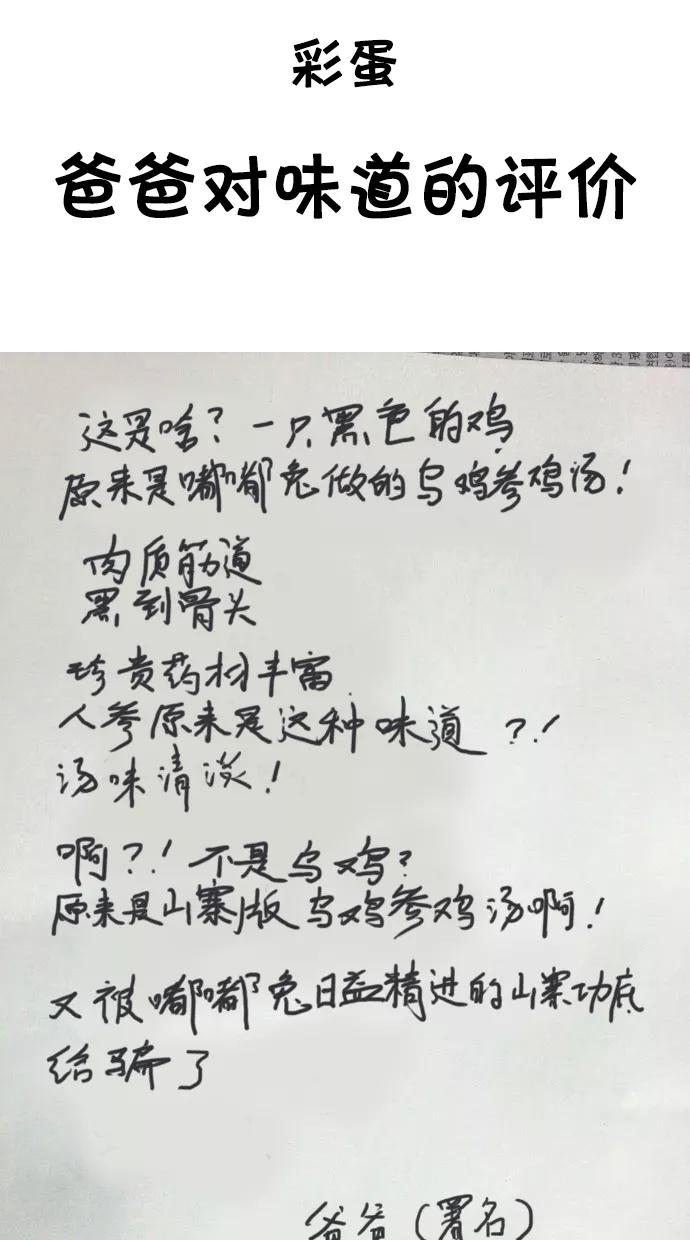 彩蛋
爸爸对味道的评价
这是啥？一只黑色的鸡
原来是嘟嘟兔做的乌鸡参鸡汤！
肉质筋道
黑到骨头
珍贵药材丰富
人参原来是这种味道？！
汤味清淡！
啊？！不是乌鸡？
原来是山寨版乌鸡参鸡汤啊！
又被嘟嘟兔日益精进的山寨功底
给骗了
爸爸（署名）